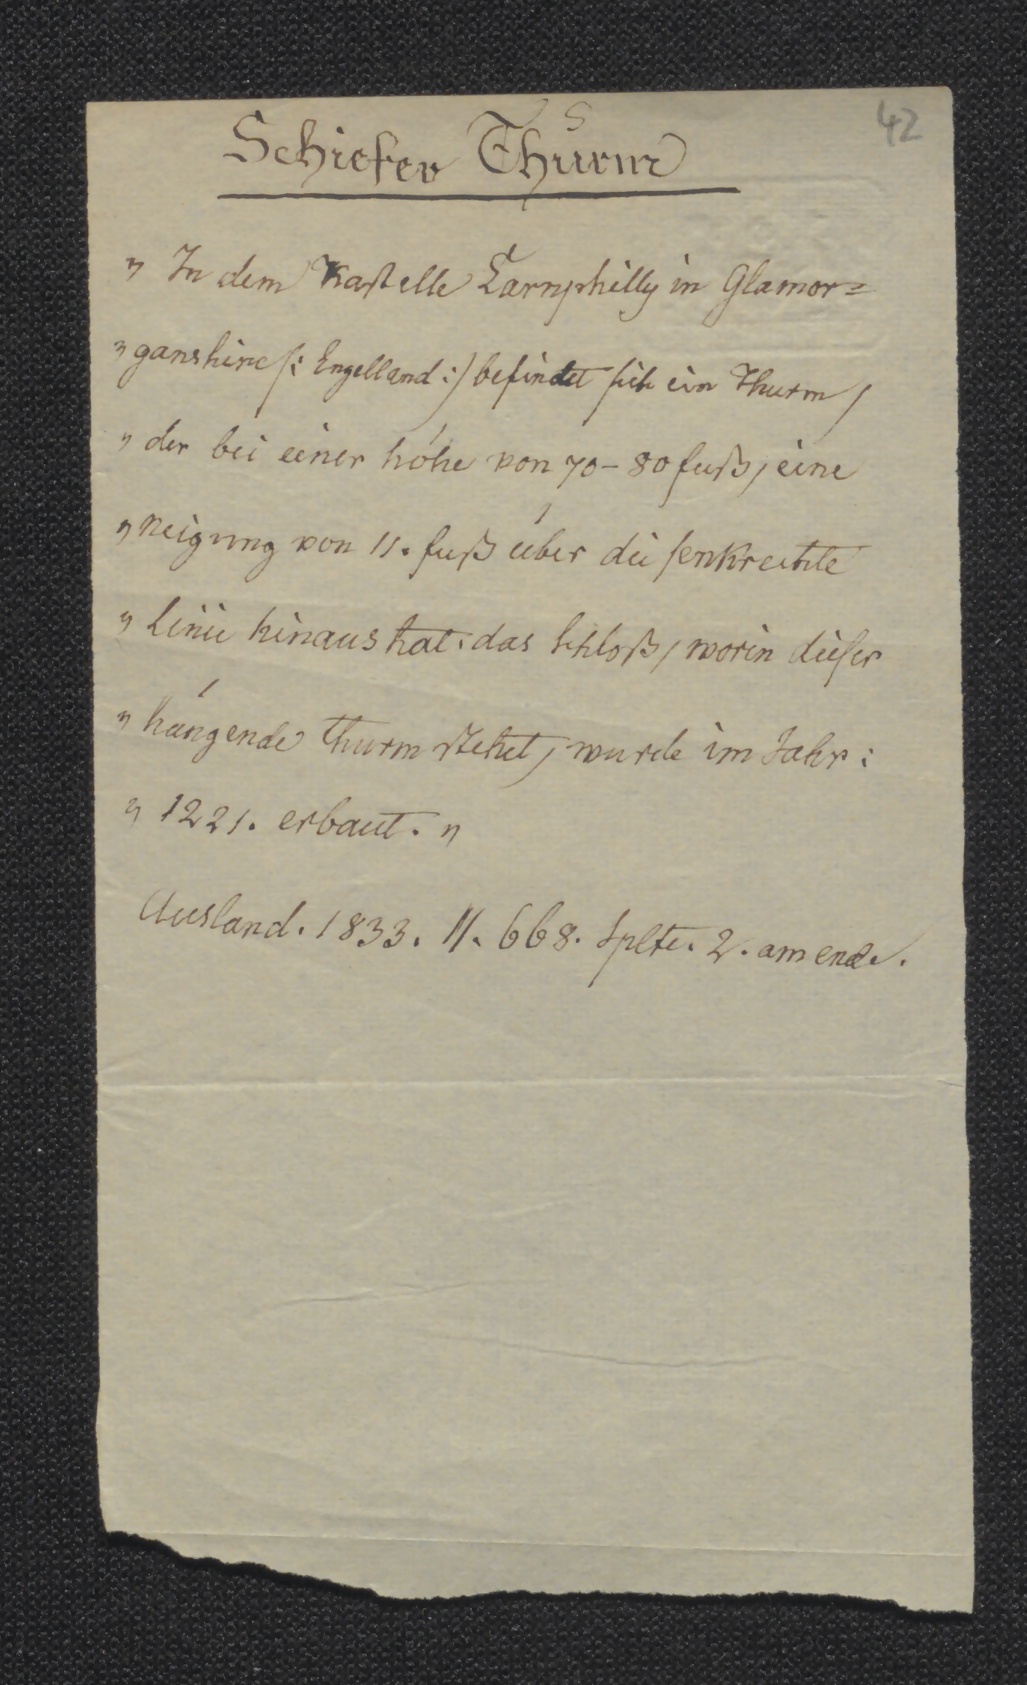 42
Schiefer Thurm
„ In dem Kastelle Carnphilly in Glamor=
„ ganshire /: Engelland :/ befindet sich ein Thurm,
„ der bei einer höhe von 70–80 fuß, eine
„ neigung von 11. fuß über die senkrechte
„ Linie hinaus hat. das schloß, worin dieser
„ hängende Thurm stehet, wurde im Jahr:
„ 1221. erbaut. „
Ausland. 1833. II. 668. Splte. 2. am ende.